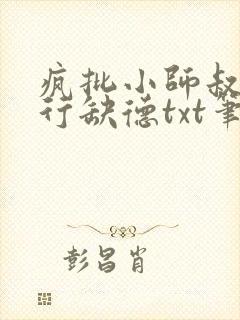 疯批小师叔
行缺德txt笔
彭昌肖